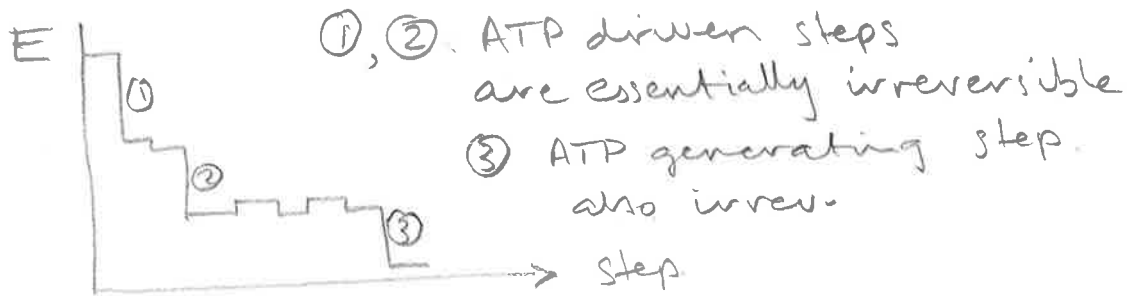 E
①, ②. ATP driven steps
are essentially irreversible
③ ATP generating step.
also irrev.
①
②
③
step